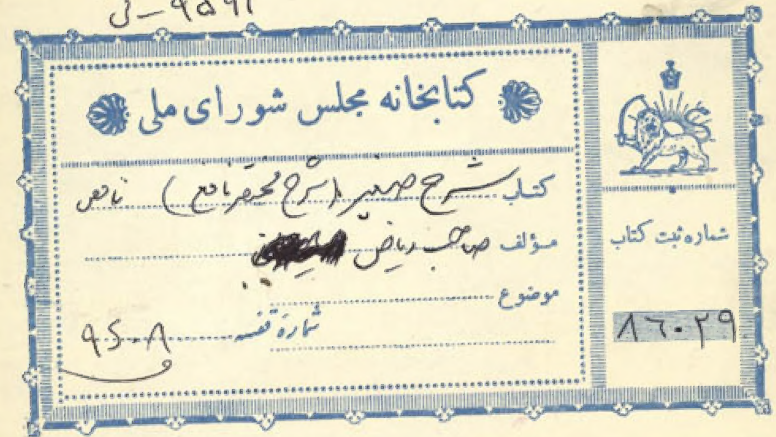 کتابخانه مجلس شورای ملی
کتاب شرح صغیر (شرح مختصر نافع) ناقص
مؤلف صاحب ریاض
موضوع
شماره قفسه
شماره ثبت کتاب
۸۶۰۲۹